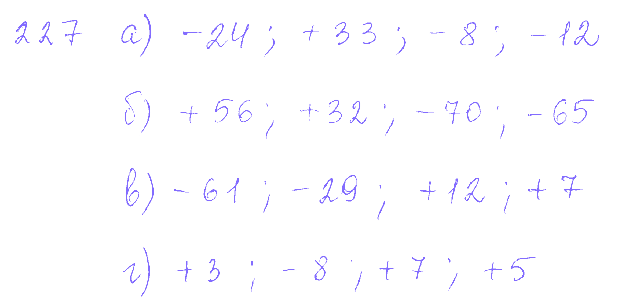 227 а) -24; +33; -8; -12
б) +56; +32; -70; -65
в) -61; -29; +12; +7
г) +3; -8; +7; +5